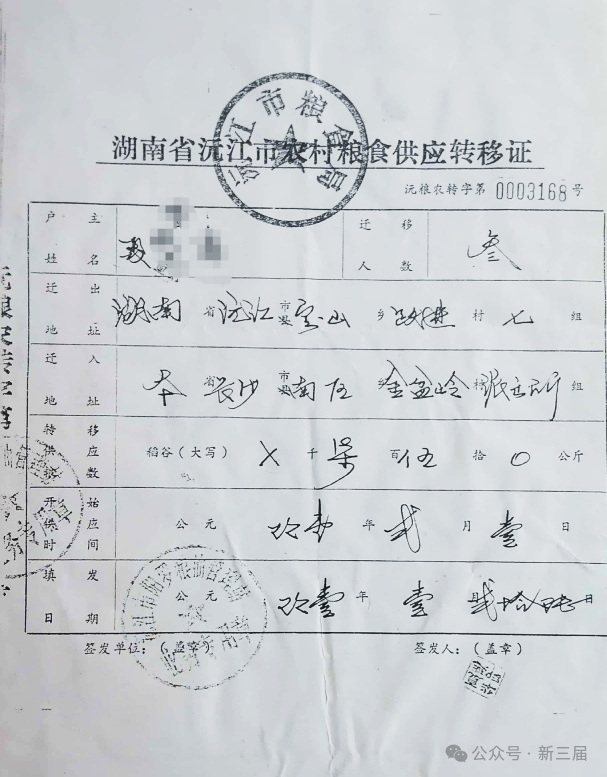 沅江市粮食局
湖南省沅江市农村粮食供应转移证
沅粮农转字第 0003168 号
户主姓名
迁移人数 叁
迁出地址 湖南 省 沅江 市 山 乡 跃进 村 七 组
迁入地址 本 省 长沙 市 南区 乡 金盆岭 村 派出所 组
转移供应指数 稻谷（大写） X 千 柒 百 伍 拾 0 公斤
开始供应时间 公元 玖 年 贰 月 壹 日
填发日期 公元 玖壹 年 壹 月 贰拾 日
签发单位：（盖章）
签发人：（盖章）
公众号·新三届